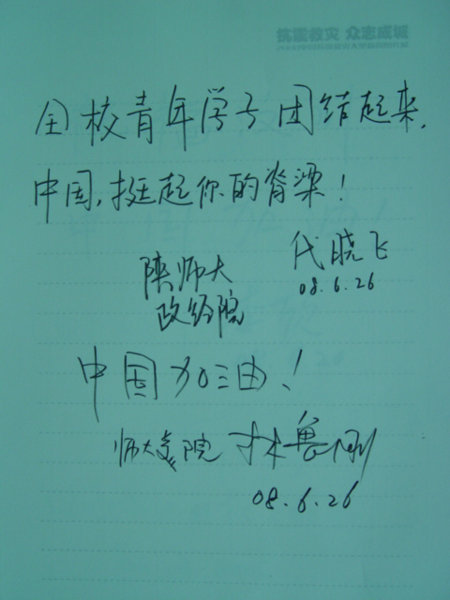 抗震救灾 众志成城
全校青年学子团结起来,
中国,挺起你的脊梁!
代晓飞
陕师大
08.6.26
政经院
中国加油!
师大 院 林鲁刚
08.6.26